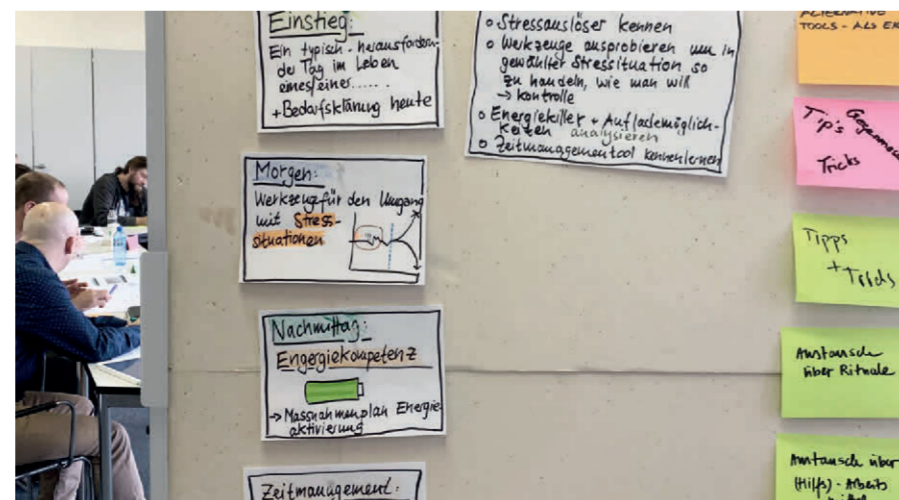 Einstieg:
Ein typisch-herausfordern-
der Tag im Leben
eines/einer......
+ Bedarfsklärung heute
Morgen:
Werkzeug für den Umgang
mit Stress-
situationen
Nachmittag:
Engergiekompetenz
→ Massnahmenplan Energie-
aktivierung
Zeitmanagement:
o Stressauslöser kennen
o Werkzeuge ausprobieren um in
gewählter Stressituation so
zu handeln, wie man will
→ Kontrolle
o Energiekiller + Auflademöglich-
keiten analysieren
o Zeitmanagementool kennenlernen
ALTERNATIVE
TOOLS - ALS
Tip's
Tricks
Tipps
+ Tricks
Austausch
über Rituale
Austausch über
(Hilfs)-Arbeits